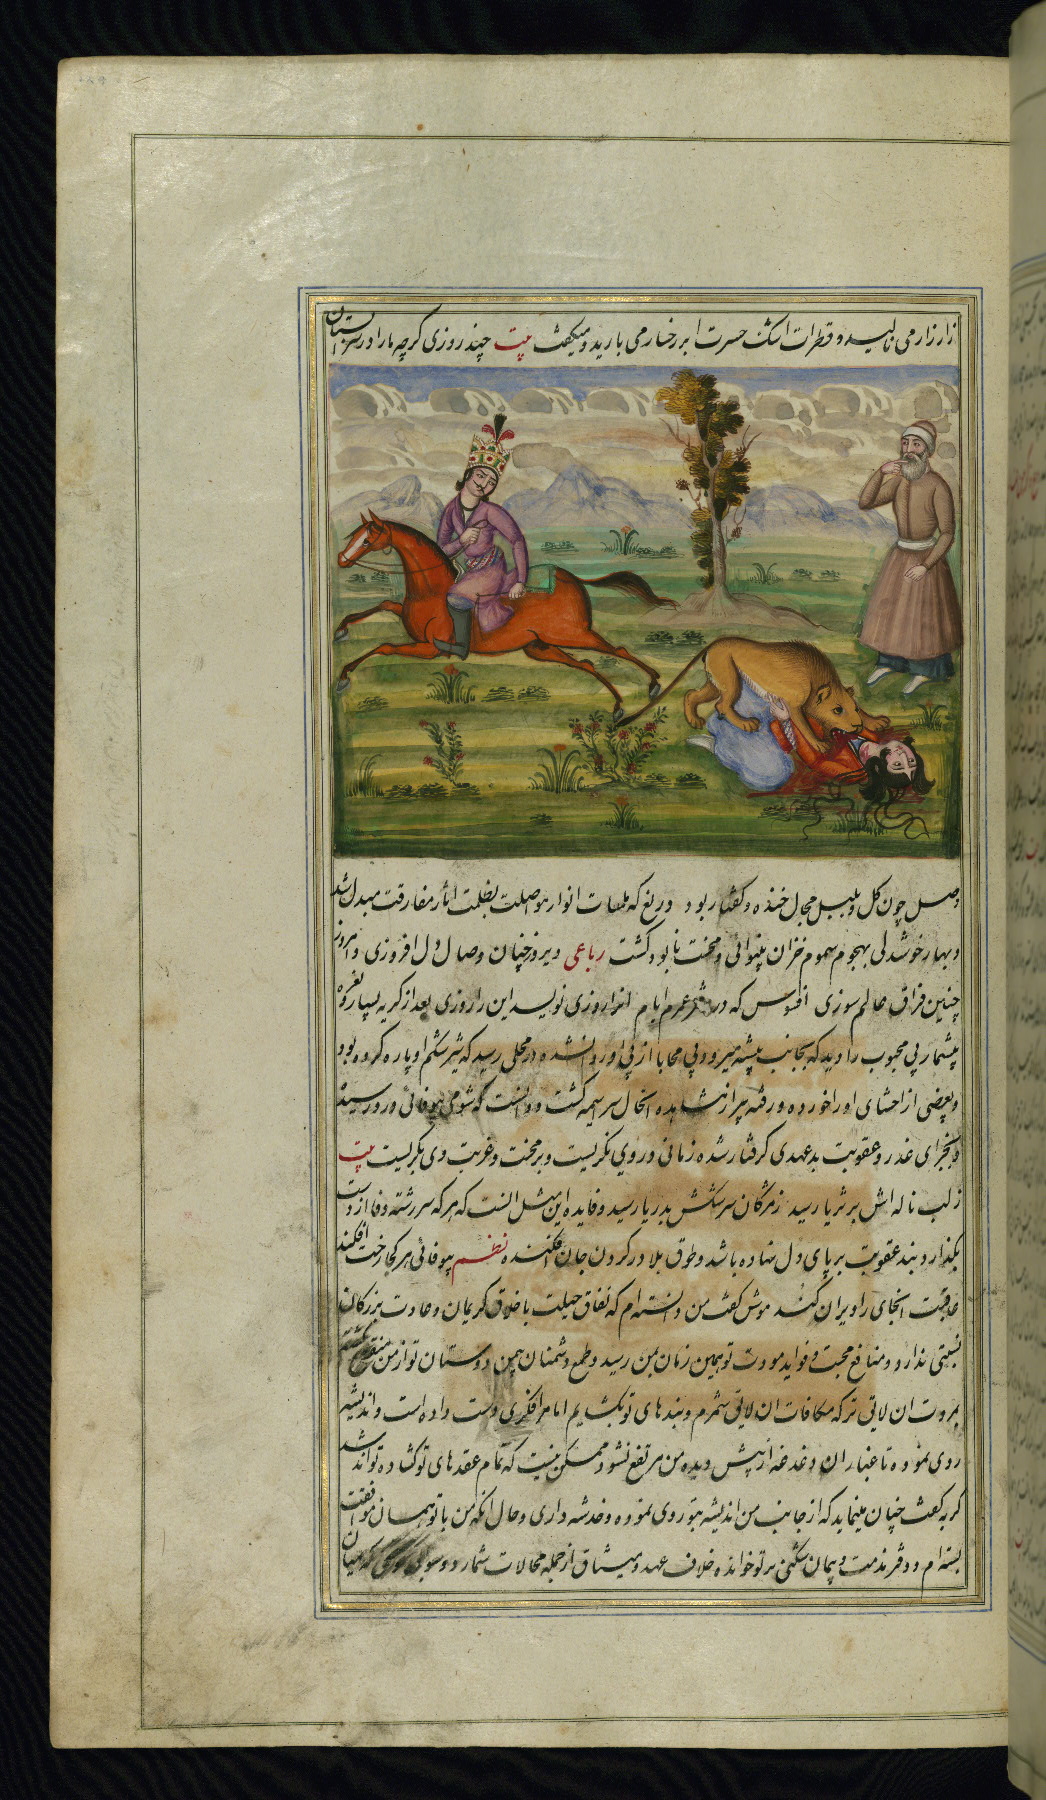 زار زار می نالید و قطرات اشک حسرت بر رخسار می بارید و میکفت بیت چند روزی کرچه ما را در سرابستان
وصل چون کل و بلبل مجال خنده و کفتار بود دریغ که لمعات انوار مواصلت بظلمت اثار مفارقت مبدل شد
و بهار خوشدلی بهجوم سموم خزان بینوائی و محنت نابود کشت رباعی دیروز چنان وصال دل افروزی و امروز
چنین فراق عالم سوزی افسوس که در دفتر عمرم ایام انرا روزی نویسد این را روزی بعد از کریه بسیار و نفره
بیشمار پی محبوب را دید که بجانب بیشه میرود بی محابا از پی او روان شده در محلی رسید که شیر شکم او پاره کرده بود
و بعضی از احشای او را خورده و رفته پیر از مشاهده انحال سراسیمه کشت و دانست که شومی بیوفائی در و رسیده
و بجزای غدر و عقوبت بدعهدی کرفتار شده زمانی در وی نکریست و بر محنت و غربت وی بکریست بیت
ز لب ناله اش بر ثریا رسید ز مژکان سرشکش بدریا رسید و فایده این مثل انست که هر که سر رشته وفا از دست
بکذارد بند عقوبت بر پای دل نهاده باشد و طوق بلا در کردن جان افکنده نظم بیوفائی هر کجا رخت افکند
عاقبت انجای را ویران کند موش کفت من دانسته ام که نفاق و حیلت با خلاق کریمان و عادت بزرکان
نسبتی ندارد و منافع محبت و فواید مودت تو همین زمان بمن رسید و طمع دشمنان بیمن دوستان تو از من منقطع کشت
بمروت ان لایق تر که مکافات ان لایق شمرم و بندهای تو بکشایم اما مرا فکری دست داده است و اندیشه
روی نموده تا غبار ان دغدغه از پیش دیده من مرتفع نشود ممکن نیست که تمام عقدهای تو کشاده تواند شد
کربه کفت چنان مینماید که از جانب من اندیشه بتو روی نموده و خدشه داری و حال انکه من با تو پیمان موافقت
بسته ام و دفتر مذمت پیمان شکنی بر تو خوانده خلاف عهد و میثاق از جمله محالات شمار و وسوسه